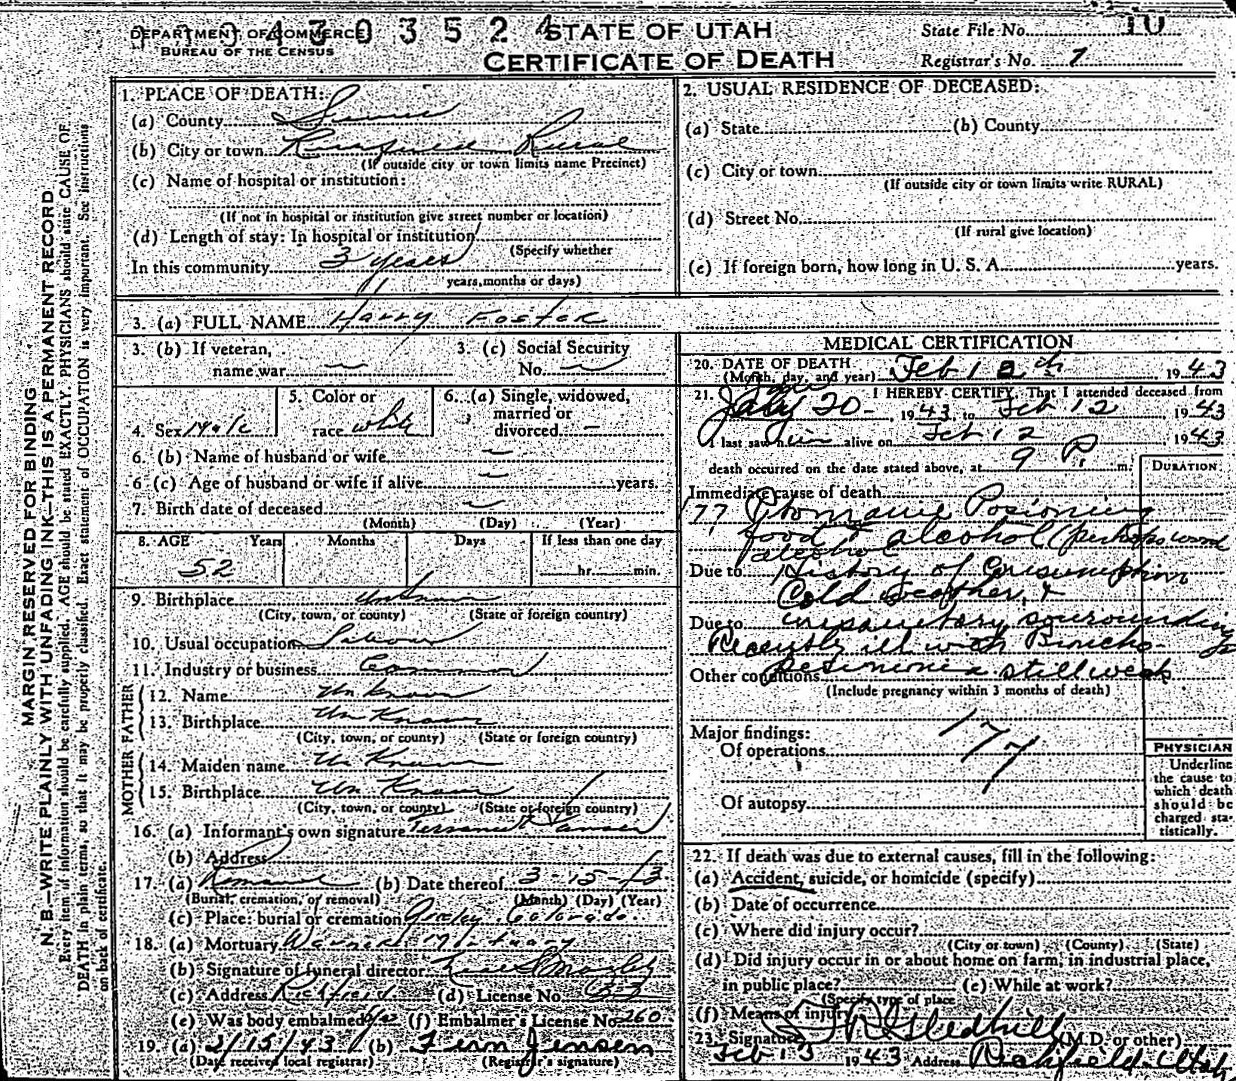 0 0 0 4 7 0 3 5 2 4
DEPARTMENT OF COMMERCE
BUREAU OF THE CENSUS
STATE OF UTAH
CERTIFICATE OF DEATH
State File No. 10
Registrar's No. 7
MARGIN RESERVED FOR BINDING
N. B.—WRITE PLAINLY WITH UNFADING INK—THIS IS A PERMANENT RECORD
Every item of information should be carefully supplied. AGE should be stated EXACTLY. PHYSICIANS should state CAUSE OF
DEATH in plain terms, so that it may be properly classified. Exact statement of OCCUPATION is very important. See instructions
on back of certificate.
1. PLACE OF DEATH:
(a) County Sevier
(b) City or town Rural
(If outside city or town limits name Precinct)
(c) Name of hospital or institution:
(If not in hospital or institution give street number or location)
(d) Length of stay: In hospital or institution
(Specify whether
In this community 3 years
years, months or days)
2. USUAL RESIDENCE OF DECEASED:
(a) State (b) County
(c) City or town
(If outside city or town limits write RURAL)
(d) Street No.
(If rural give location)
(e) If foreign born, how long in U. S. A. years.
3. (a) FULL NAME Harry Foster
3. (b) If veteran, name war —
3. (c) Social Security No. —
4. Sex Male
5. Color or race white
6. (a) Single, widowed, married or divorced —
6. (b) Name of husband or wife —
6 (c) Age of husband or wife if alive — years.
7. Birth date of deceased —
(Month) (Day) (Year)
8. AGE Years Months Days If less than one day
52 hr. min.
9. Birthplace Unknown
(City, town, or county) (State or foreign country)
10. Usual occupation Labour
11. Industry or business Common
FATHER
12. Name Un Known
13. Birthplace Un Known
(City, town, or county) (State or foreign country)
MOTHER
14. Maiden name Un Known
15. Birthplace Un Known
(City, town, or county) (State or foreign country)
16. (a) Informant's own signature
(b) Address
17. (a) Removal (b) Date thereof 3-15-43
(Burial, cremation, or removal) (Month) (Day) (Year)
(c) Place: burial or cremation Greeley Colorado.
18. (a) Mortuary Warner Mortuary
(b) Signature of funeral director
(c) Address Richfield (d) License No. 33
(e) Was body embalmed? yes (f) Embalmer's License No. 260
19. (a) 2/15/43 (b) Fern Jensen
(Date received local registrar) (Registrar's signature)
MEDICAL CERTIFICATION
20. DATE OF DEATH
(Month, day, and year) Feb 12th 1943
21. I HEREBY CERTIFY, That I attended deceased from
Jan
July 20- 1943 to Feb 12 1943
I last saw him alive on Feb 12 1943
death occurred on the date stated above, at 9 P. m.
DURATION
Immediate cause of death
177 Ptomaine Posioning
food & alcohol (perhaps wood
alcohol
Due to History of Consumption
Cold weather, &
Due to unsanitary sourounding
Recently ill with Broncho
Other conditions still weak
(Include pregnancy within 3 months of death)
177
Major findings:
Of operations
Of autopsy
PHYSICIAN
Underline
the cause to
which death
should be
charged sta-
tistically.
22. If death was due to external causes, fill in the following:
(a) Accident, suicide, or homicide (specify)
(b) Date of occurrence
(c) Where did injury occur?
(City or town) (County) (State)
(d) Did injury occur in or about home on farm, in industrial place,
in public place? (e) While at work?
(Specify type of place
(f) Means of injury
23. Signature Gledhill (M.D. or other)
Feb 13 1943 Address Richfield Utah